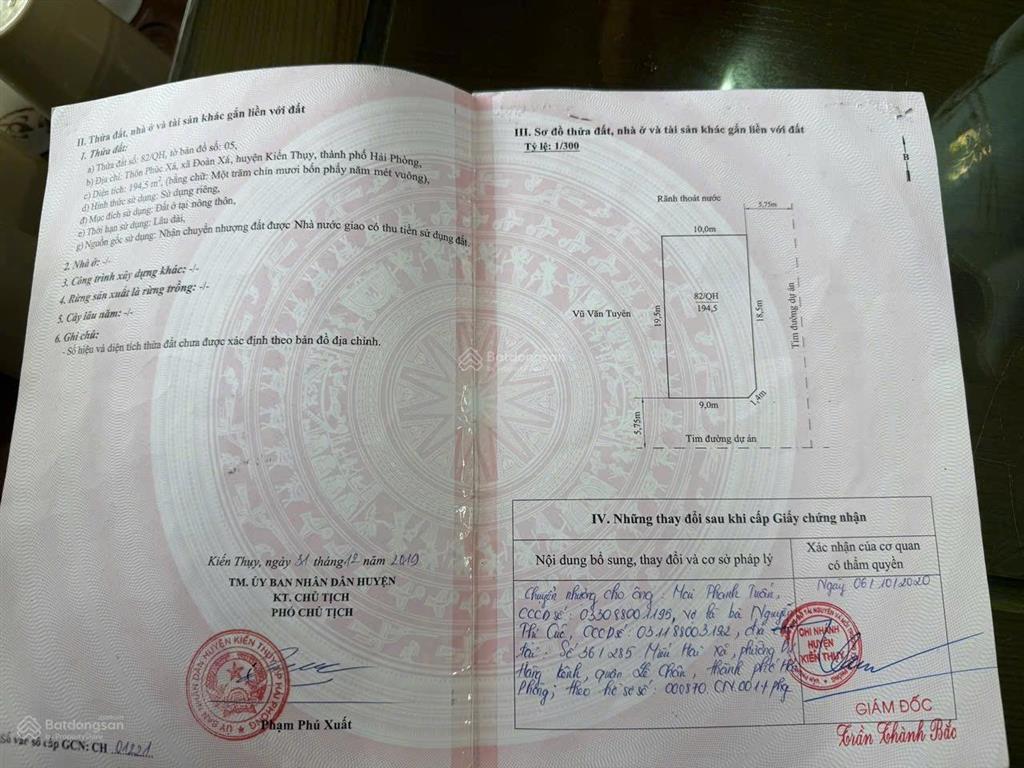 II. Thửa đất, nhà ở và tài sản khác gắn liền với đất
1. Thửa đất:
a) Thửa đất số: 82/QH, tờ bản đồ số: 05,
b) Địa chỉ: Thôn Phúc Xá, xã Đoàn Xá, huyện Kiến Thụy, thành phố Hải Phòng,
c) Diện tích: 194,5 m², (bằng chữ: Một trăm chín mươi bốn phẩy năm mét vuông),
d) Hình thức sử dụng: Sử dụng riêng,
đ) Mục đích sử dụng: Đất ở tại nông thôn,
e) Thời hạn sử dụng: Lâu dài,
g) Nguồn gốc sử dụng: Nhận chuyển nhượng đất được Nhà nước giao có thu tiền sử dụng đất.
2. Nhà ở: -/-
3. Công trình xây dựng khác: -/-
4. Rừng sản xuất là rừng trồng: -/-
5. Cây lâu năm: -/-
6. Ghi chú:
- Số hiệu và diện tích thửa đất chưa được xác định theo bản đồ địa chính.
Kiến Thụy, ngày 31 tháng 12 năm 2019
TM. ỦY BAN NHÂN DÂN HUYỆN
KT. CHỦ TỊCH
PHÓ CHỦ TỊCH
Phạm Phú Xuất
Số vào sổ cấp GCN: CH 01221
III. Sơ đồ thửa đất, nhà ở và tài sản khác gắn liền với đất
Tỷ lệ: 1/300
B
Rãnh thoát nước
5,75m
10,0m
82/QH
194,5
Vũ Văn Tuyên
19,5m
18,5m
Tim đường dự án
1,4m
9,0m
5,75m
Tim đường dự án
Batdongsan
by PropertyGuru
IV. Những thay đổi sau khi cấp Giấy chứng nhận
Nội dung bổ sung, thay đổi và cơ sở pháp lý
Xác nhận của cơ quan
có thẩm quyền
Chuyển nhượng cho ông: Mai Thanh Tuấn,
CCCD số: , vợ là bà Nguyễn
Thị Cúc, CCCD số: 031188003192, địa chỉ
tại: Số 361 285 Miếu Hai Xã, phường Dư
Hàng Kênh, quận Lê Chân, thành phố Hải
Phòng; theo hồ sơ số: 000870.CN.001
Ngày 06/10/2020
CHI NHÁNH
HUYỆN
KIẾN THỤY
GIÁM ĐỐC
Trần Thành Bắc
Batdongsan
by PropertyGuru
Batdongsan